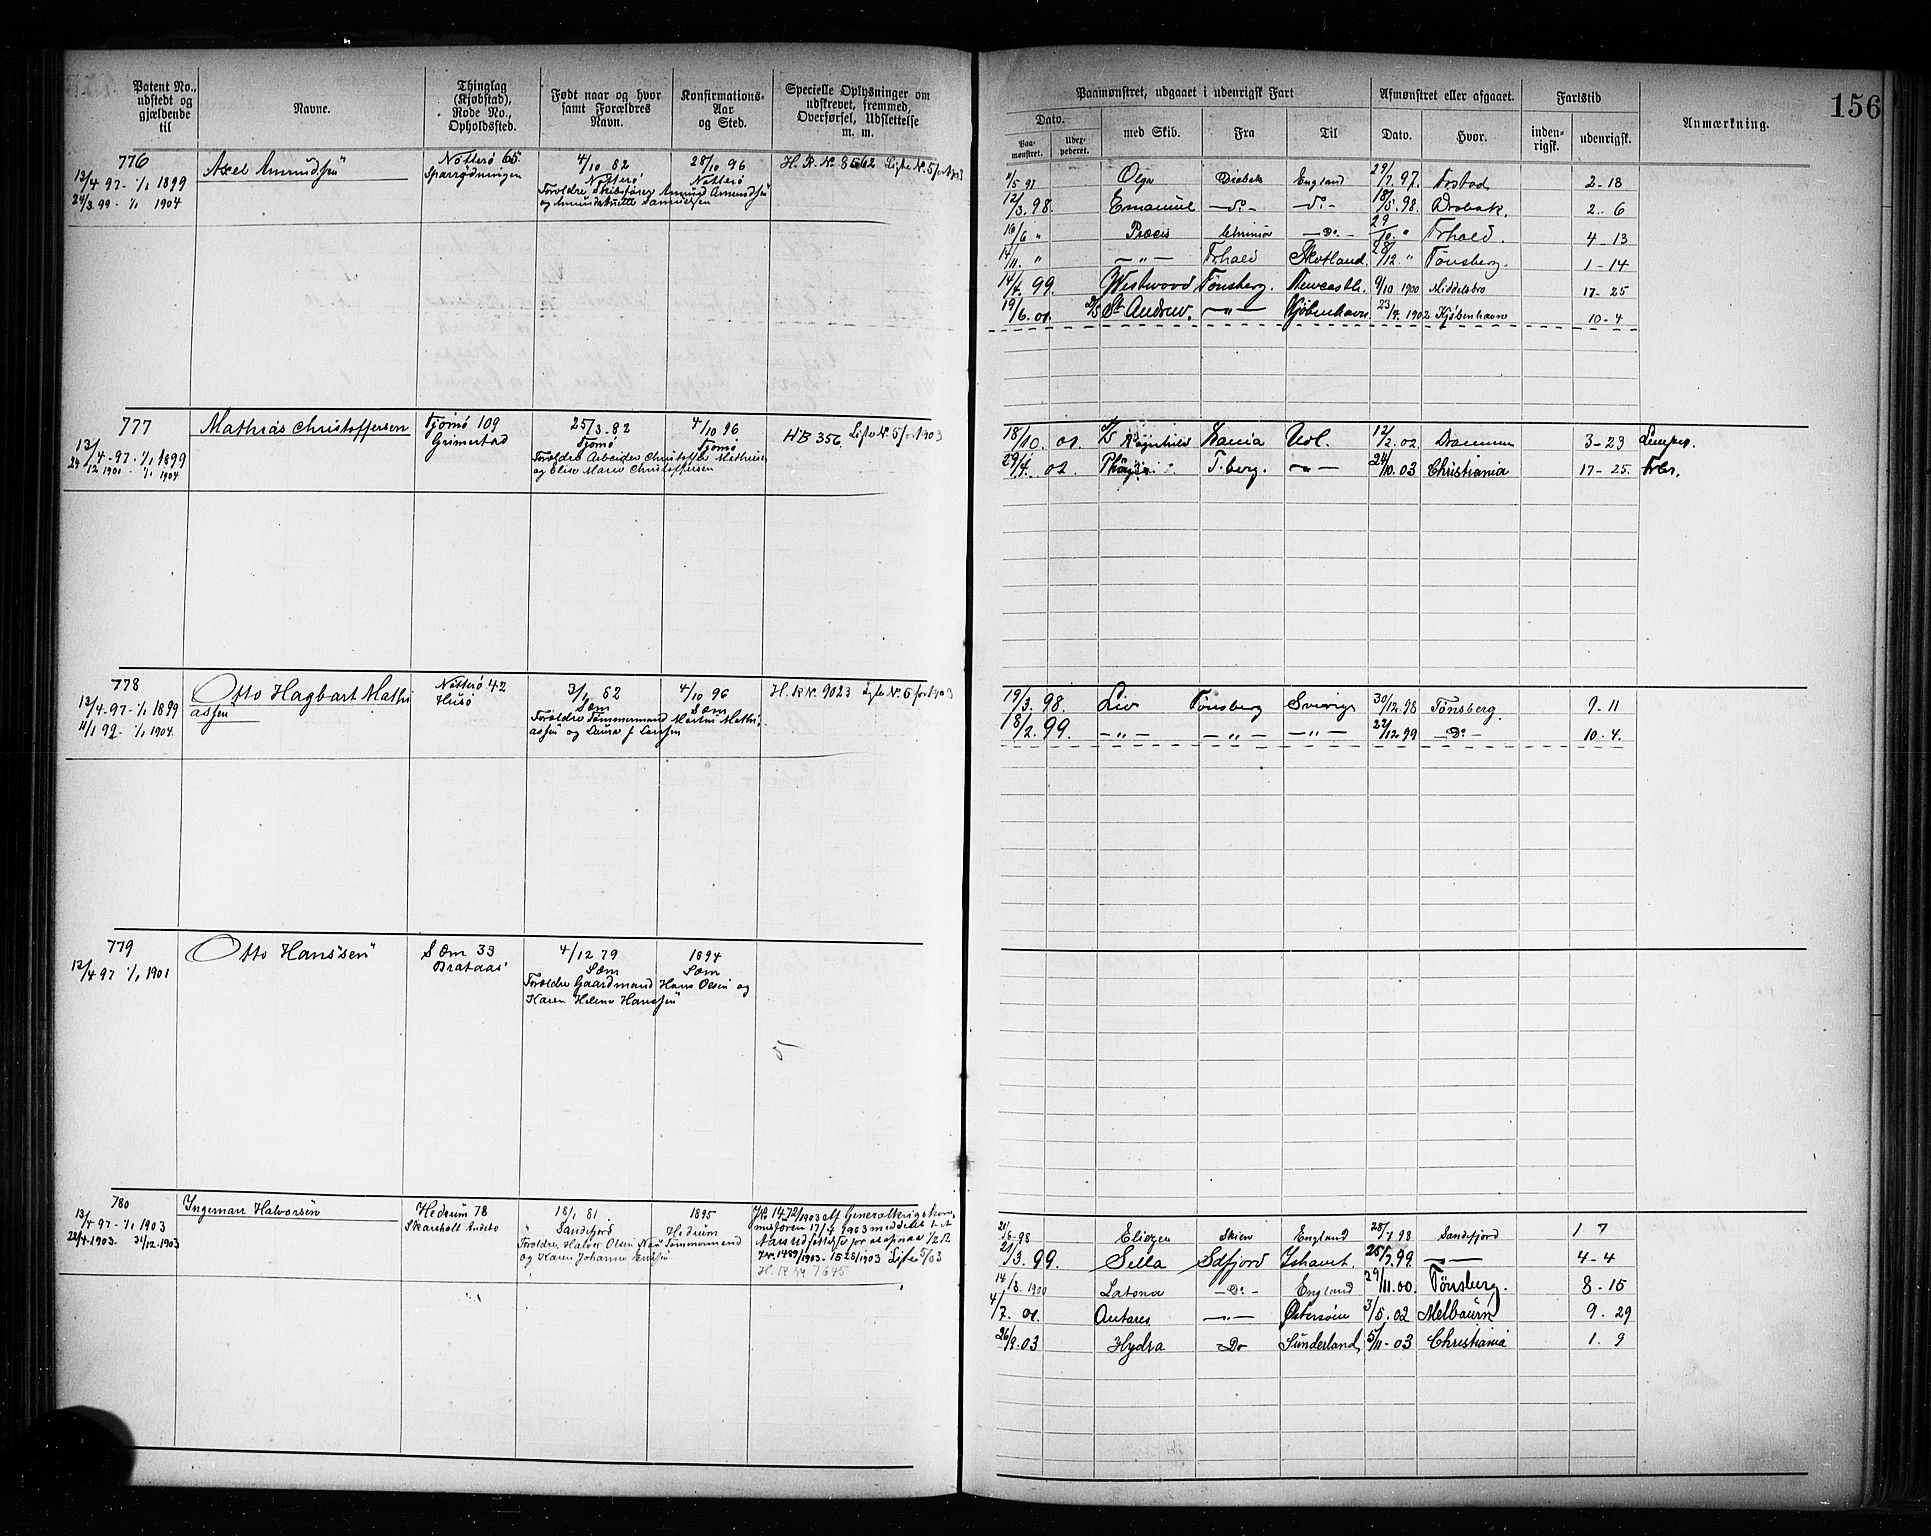 156
Patent No., udstedt og gjældende til
Navne.
Thinglag (Kjøbstad), Rode No., Opholdssted.
Født naar og hvor samt Forældres Navn.
Konfirmations-Aar og Sted.
Specielle Oplysninger om udskrevet, fremmed, Overførsel, Udslettelse m. m.
Paamønstret, udgaaet i udenrigsk Fart
Afmønstret eller afgaaet.
Fartstid
Anmærkning.
Dato.
Paa-mønstret.
Uder-pederet.
med Skib.
Fra
Til
Dato.
Hvor.
inden-rigsk.
udenrigsk.
776
13/4 97 - 1/1 1899
24/3 99 - 1/1 1904
Axel Amundsen
Nøtterø 65
Sparrødningen
4/10 82
Nøtterø
28/10 96
Nøtterø
Forældre Skibsfører Amund Amundsen
H. R. Nº 8562 Liste Nº 5 for 1903
11/5 97 Olga Drøbak England 29/7. 97. Frstad 2-18
12/3. 98. Emanuel — do — — do — 18/5. 98. Drøbak. 2 - 6
16/6 " Præcis Chrania — Do — 29/10. " Frhald. 4 - 13
14/11. " — " — Frhald Skotland. 28/12. " Tønsberg. 1 - 14
14/4. 99. Westwood Tønsberg. Newcastle. 9/10 1900 Middelsbro 17 - 25
19/6. 01. 2/5 St Andrew. — " — Kjøbenhavn. 23/4. 1902 Kjøbenhavn 10 - 4
777
13/4 - 97 - 1/1 1899
24/12 1901 - 1/1 1904
Mathias Christoffersen
Tjømø 109
Grimestad
25/3 - 82
Tjømø
4/10 96
Tjømø
Forældre Arbeider Christoffer Mathisen
og Elise Marie Christoffersen
HB 356 Liste Nº 5 for 1903
18/10. 01. Ragnhild Xania Udl. 12/2. 02. Drammen 3 - 23 Lemper.
29/4. 02. T.berg. — " — 24/10. 03 Christiania 17 - 25.
778
13/4 - 97 - 1/1 1899
11/1 99 - 1/1 1904
Otto Hagbart Mathi
assen
Nøtterø 42
Husø
3/1 82
Sæm
4/10 96
Sæm
Forældre Tømmermand Martin Mathi
assen og Laura J. Larsen
H. R Nº. 9023 Liste Nº 5 for 1903
19/3. 98. Liv Tønsberg Sverige 30/12. 98 Tønsberg. 9 - 11
18/2. 99. — " — — " — — " — 22/12 99 — Do — 10 - 4.
779
13/4 97 1/1 1901
Otto Hanssen
Sæm 33
Brataas
4/12 79
Sæm
1894
Sæm
Forældre Gaardmand Hans Olsen og
Karen Helene Hanssen
780
13/4 97 - 1/1 1903
22/4 - 1903. 31/12 - 1903
Ingeman Halvorsen
Hedrum 78
Skarsholt Andebo
18/1 81
Sandefjord
1895
Hedrum
Forældre, Halvor Olsen Tømmermand
og Karen Johanne
Generalkrigskom
misføren 17/4 1903 meddelt 1 A
Aars udsettelse for
Jvr. 1489/1903 - 1528/1903 Liste 5/03
H. R Nº 7645
21/6 - 98 Eliezer Skien England 28/7 98 Sandefjord 1 7
21/3. 99. Sella Sdfjord Ishavet. 25/7. 99. — " — 4 - 4
14/3. 1900 Latona — Do — England 29/11. 00. Tønsberg. 8 - 15
4/7. 01. Antares — " — Østersøen 3/5. 02 Melbourn 9. 29
26/9. 03 Hydra Do Sunderland, 5/11 - 03 Christiania 1. 9